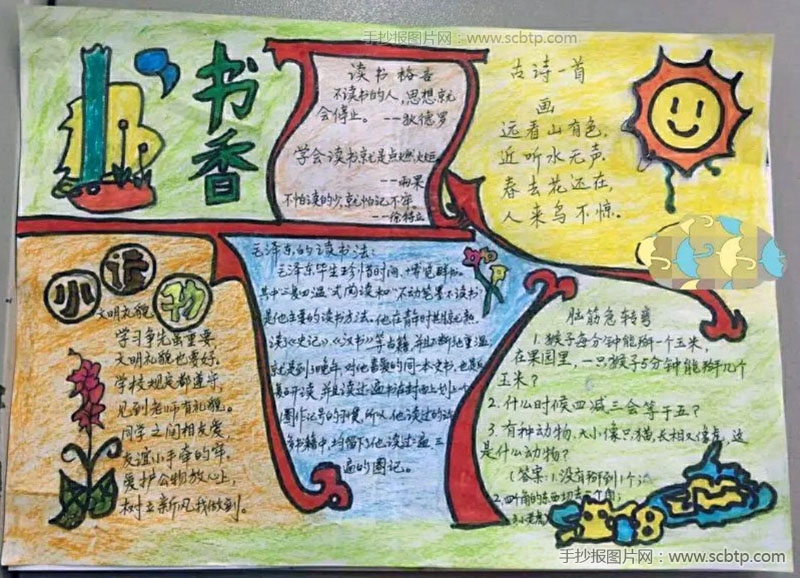 手抄报图片网：www.scbtp.com
书香
读书格言
不读书的人，思想就
会停止。 --狄德罗
学会读书就是点燃火炬。
--雨果
不怕读的少，就怕记不牢。
--徐特立
古诗一首
画
远看山有色，
近听水无声。
春去花还在，
人来鸟不惊。
小读物
文明礼貌
学习争先虽重要，
文明礼貌也需好。
学校规定都遵守，
见到老师有礼貌。
同学之间相友爱，
友谊小手牵的牢。
爱护公物放心上，
树立新风我做到。
毛泽东的读书法：
毛泽东毕生珍惜时间，博览群书。
其中“三复四温”式阅读和“不动笔墨不读书”
是他主要的读书方法。他在青年时就熟
读《史记》《汉书》等古籍，并且不断地重温，
就是到晚年，对他喜爱的同一本文书，也是反
复研读，并且读过一遍书，在封面上划上一个
圈作记号的习惯，所以，他读过的许
多书籍中，均留下了他读过一遍三
遍的圈记。
脑筋急转弯
1.猴子每分钟能掰一个玉米，
在果园里，一只猴子5分钟能掰几个
玉米？
2.什么时候四减三会等于五？
3.有种动物，大小像只猫，长相又像虎，这
是什么动物？
(答案：1.没有掰到1个；
2.四个角的东西切去一个角；
3.小老虎
手抄报图片网：www.scbtp.com